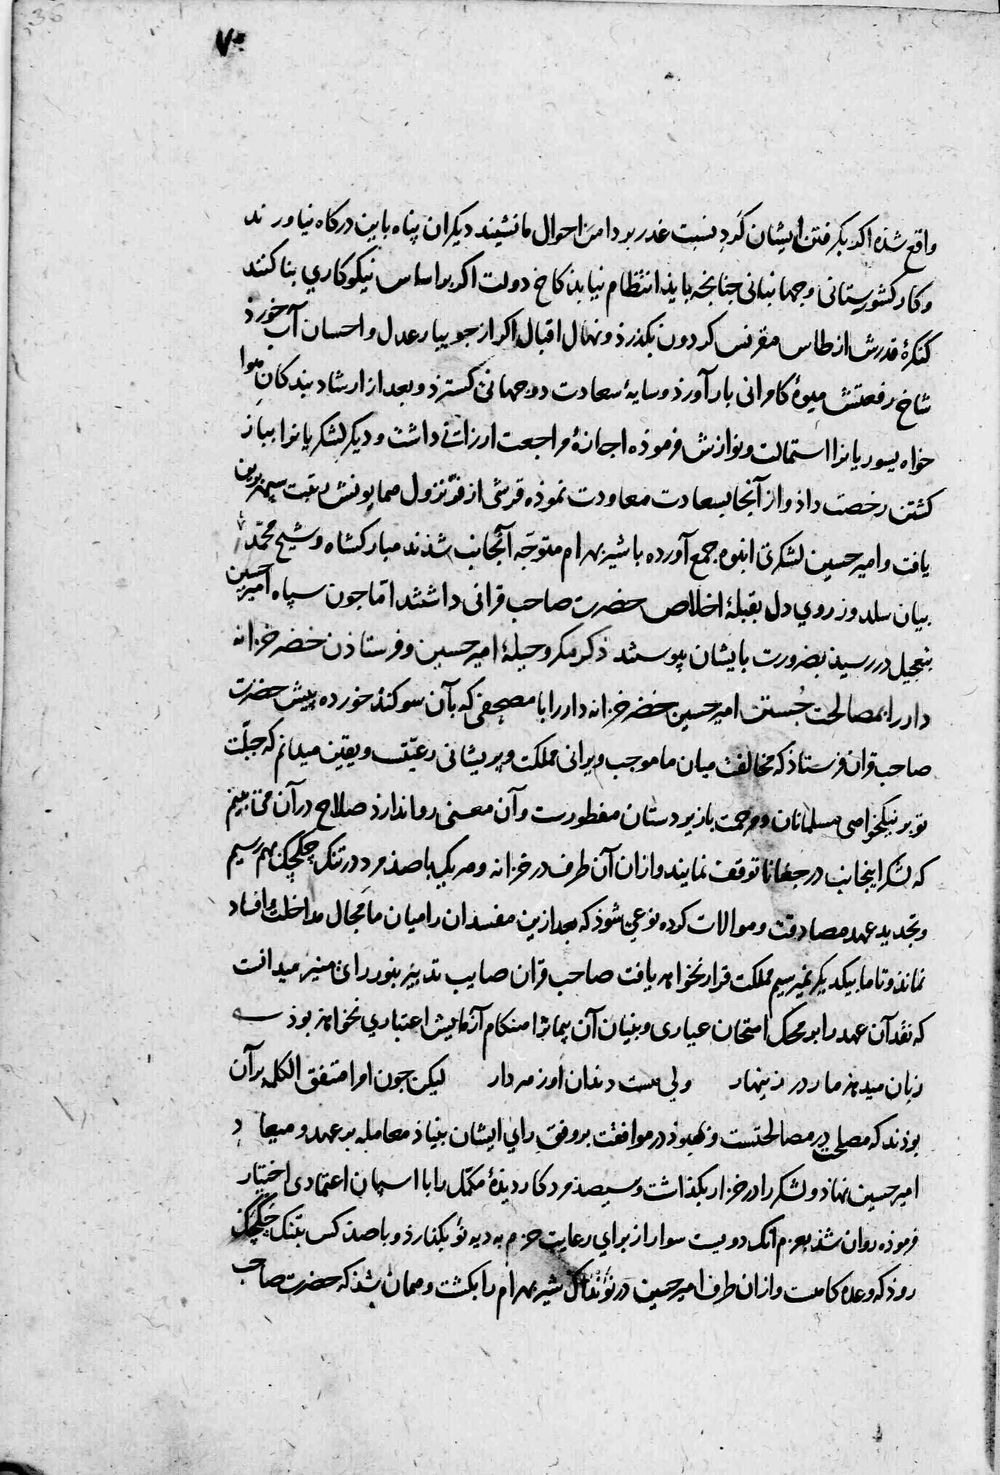 36
٧٠
واقع شذه اکر بکرفتن ایشان کرد نسبت غدر بر دامن احوال ما نشیند دیکران پناه باین درکاه نیاورند
و کار کشورستانی و جهانبانی جنانجه بایذ انتظام نیابذ کاخ دولت اکر بر اساس نیکوکاری بنا کنند
کنکرهٔ قدرش از طاس مقرنس کردون بکذرذ و نهال اقبال اکر از جویبار عدل و احسان آب خورذ
شاخ رفعتش میوهٔ کامرانی بار آورذ و سایهٔ سعادت دوجهانی کسترذ و بعد از ارشاد بندکان هوا
خواه یسوریانرا استمالت و نوازش فرموذه اجازهٔ مراجعت ارزانی داشت و دیکر لشکریانرا بباز
کشتن رخصت داذ و از آنجا بسعادت معاودت نموذه قرشی از فرّ نزول همایونش رتبت سپهر برین
یافت و امیر حسین لشکری انبوه جمع آورده با شیر بهرام متوجّه آنجانب شذند مبارکشاه و شیخ محمّد
بیان سلدوز روی دل بقبلهٔ اخلاص حضرت صاحب قرانی داشتند اما جون سپاه امیر حسین
بتعجیل در رسیذ بضرورت بایشان پیوستند ذکر مکر و حیلهٔ امیر حسین و فرستاذن خضر خزانه
دار را بمصالحت جُستن امیر حسین خضر خزانه دار را با مصحفی که بآن سوکند خورده پیش حضرت
صاحب قران فرستاذ که مخالفت میان ما موجب ویرانی مملکت و پریشانی رعیّت و یقین میدانم که جبلّت
تو بر نیکخواهی مسلمانان و مرحمت با زیردستان مفطورست و آن معنی روا ندارذ صلاح در آن می بینم
که لشکر اینجانب در جغانا توقف نمایند و از ان آن طرف در خزانه و هر یک با صذ مرد در تنک جکجک بهم رسیم
و تجدید عهد مصادقت و موالات کرده نوعی شوذ که بعد ازین مفسدان را میان ما مجال مداخلت و افساد
نماند و تا ما بیکدیکر نمیرسیم مملکت قرار نخواهد یافت صاحب قران صایب تدبیر بنور رای منیر میدانست
که نقد آن عهد را بر محک امتحان عیاری و بنیان آن پیمانرا هنکام آزمایش اعتباری نخواهد بوذ
زبان میدهد مار در زینهار ولی هست دندان او زهردار لیکن جون امرا متفق الکلمه برآن
بوذند که مصلحت در مصالحتست و بهبوذ در موافقت بر وفق رای ایشان بنیاذ معامله بر عهد و میعاد
امیر حسین نهاذ و لشکر را در خزار بکذاشت و سیصد مرد کاردیدهٔ مکمّل را با اسپان اعتمادی اختیار
فرموده روان شذ بعزم انک دویست سوار از برای رعایت حزم به دیه نو بکذارذ و با صذ کس بتنک جکجک
روذ که وعده کاهست و از ان طرف امیر حسین در شیر بهرام را بکشت و همان شذ که حضرت صاحب